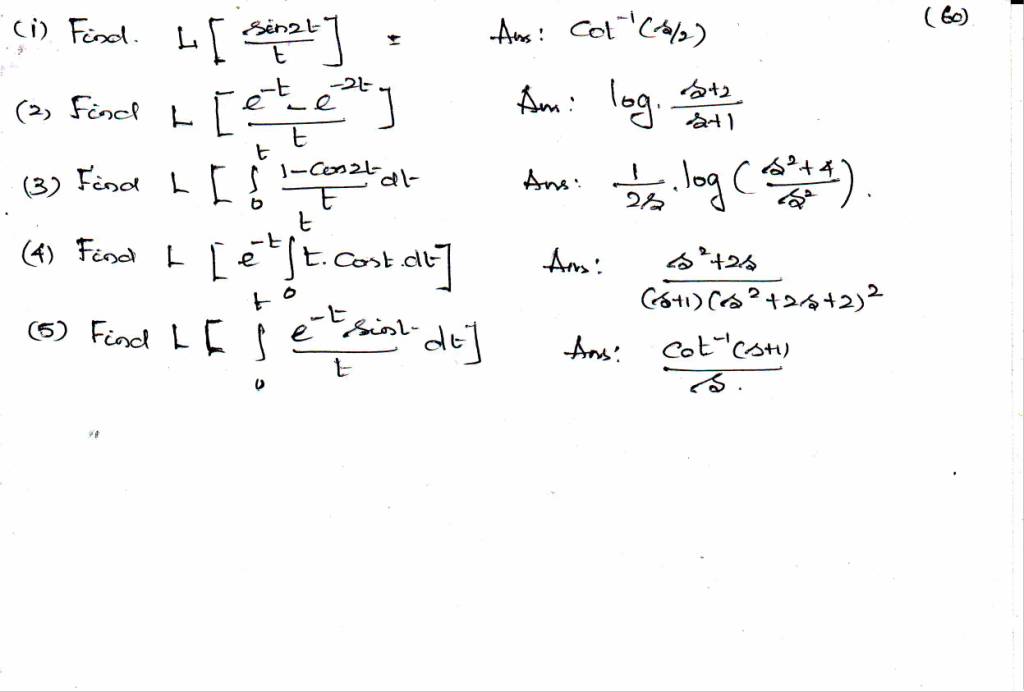 (60)
(1) Find. L[ sin2t / t ] = Ans: Cot⁻¹(s/2)
(2) Find L [ e^-t - e^-2t / t ] Ans: log. s+2 / s+1
(3) Find L [ ∫₀^t 1-cos2t / t dt Ans: 1/2s . log ( s²+4 / s² ) .
(4) Find L [ e^-t ∫₀^t t. cost. dt ] Ans: s²+2s / (s+1)(s²+2s+2)²
(5) Find L [ ∫₀^t e^-t sint / t dt ] Ans: Cot⁻¹(s+1) / s .